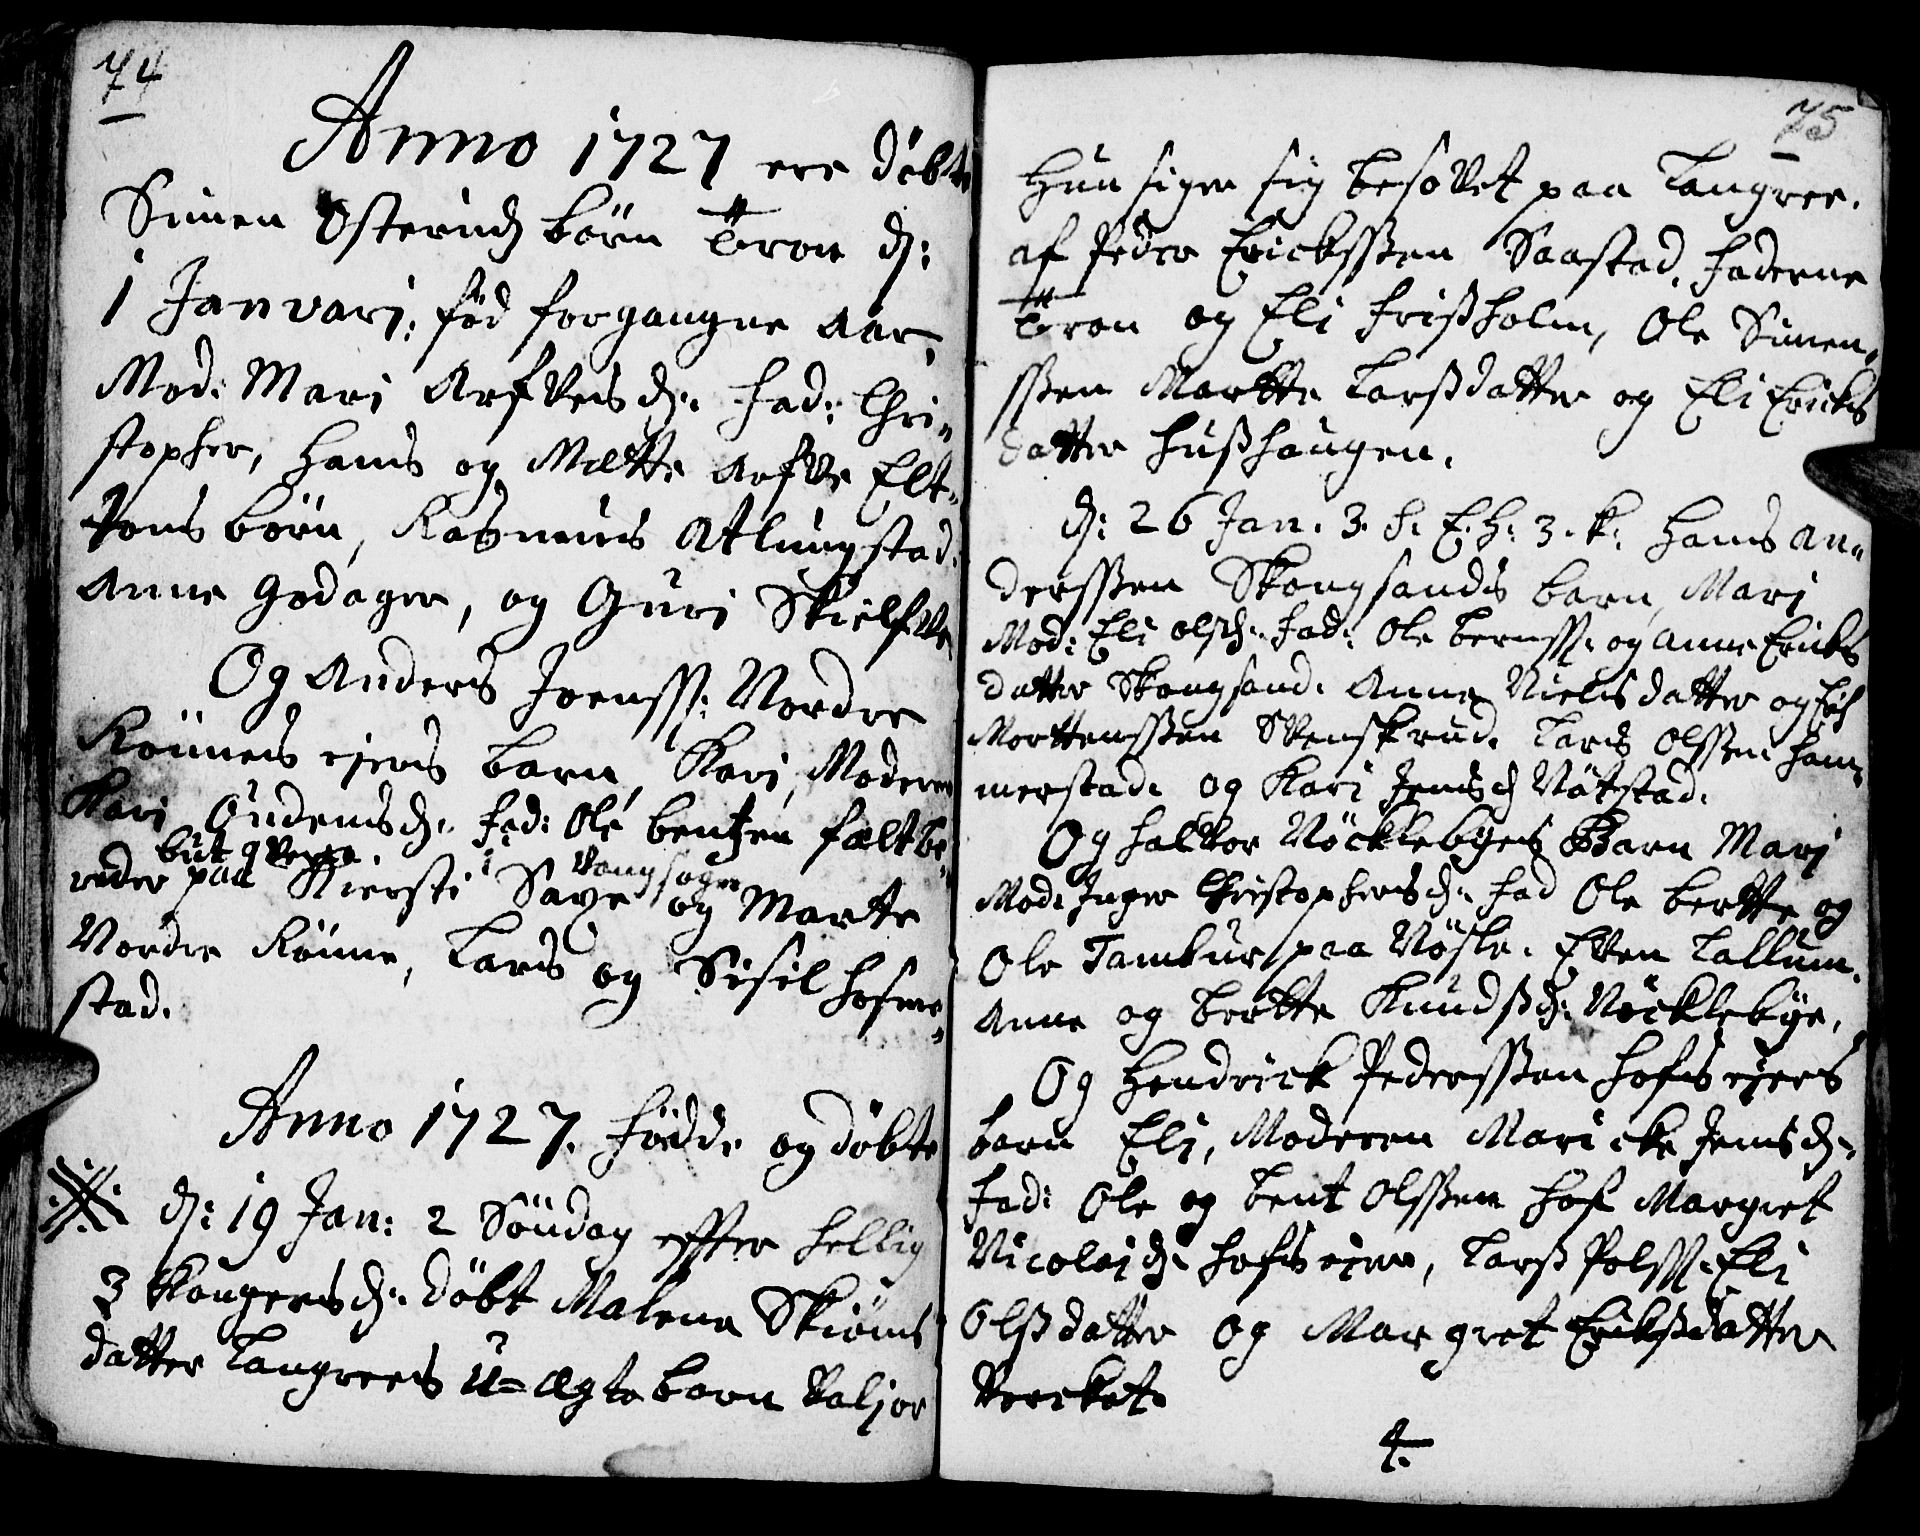 74
Anno 1727 ere döbt
Simen Østeruds börn Tron d:
1 Janvarj: föd forgangne aar,
Mod: Mari Arfvesd: Fad: Chri-
stopher, Hans og Mætte Arfve Elt-
tons börn, Rasmus Atlungstad.
Anne Godager, og Guri Skielfve
Og Anders Joenss: Nordre
Rönnes ejers barn, Kari, Moderen
Kari Gudemsd: Fad: Ole bentzen faltbe-
reder paa Kiersti i Saxe og Marte
Vangsogn
Nordre Rönne, Lars og Sisil Hosme-
stad.
Anno 1727. Födde og döbte
d: 19 Jan: 2 Söndag effter Hellig
3 Kongersd: döbt Malena Skiöns
datter Langrees U=ægte barn Valjor
75
Hun siger sig besovet paa Langree.
af Peder Erickssen Saastad, Faderne
Tron og Eli Frissholm, Ole Simen-
ssen Martte Larssdatter og Eli Ericks
datter Husshaugen.
d: 26 Jan. 3. S. E. H: 3. K: Hans An-
derssen Skougsands barn, Mari
Mod: Eli Olsd: Fad: Ole bernss: og Anne Ericks
datter Skougsand. Anne Nielsdatter og
Mortenssen Svenskrud. Lars Olssen Ham-
merstad. og Kari Jensd Nötstad.
Og Halvor Nöcklebyes Barn Marj
Mod: Inger Christophersd: Fad Ole bertte og
Ole Tambur paa Nösle. Even Lallum.
Anne og bertte Knudssd: Nöcklebye.
Og Hendrick Pederssen Hofs ejers
barn Elj, Moderen Maricke Jensd:
Fad: Ole og bent Olssen Hof Margret
Nicolajd: Hofs ejer, Larss Polss: Eli
Olssdatter og Margret Erickssdatter
Vercket.
4.